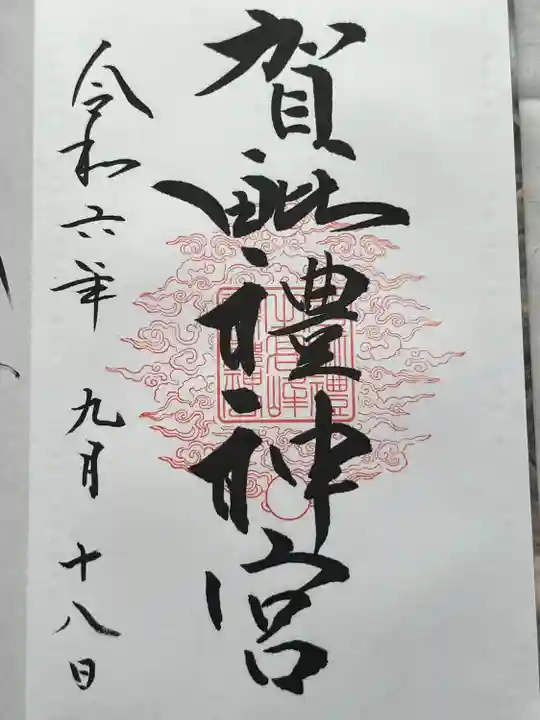 賀毗禮神宮
令和六年 九月 十八日